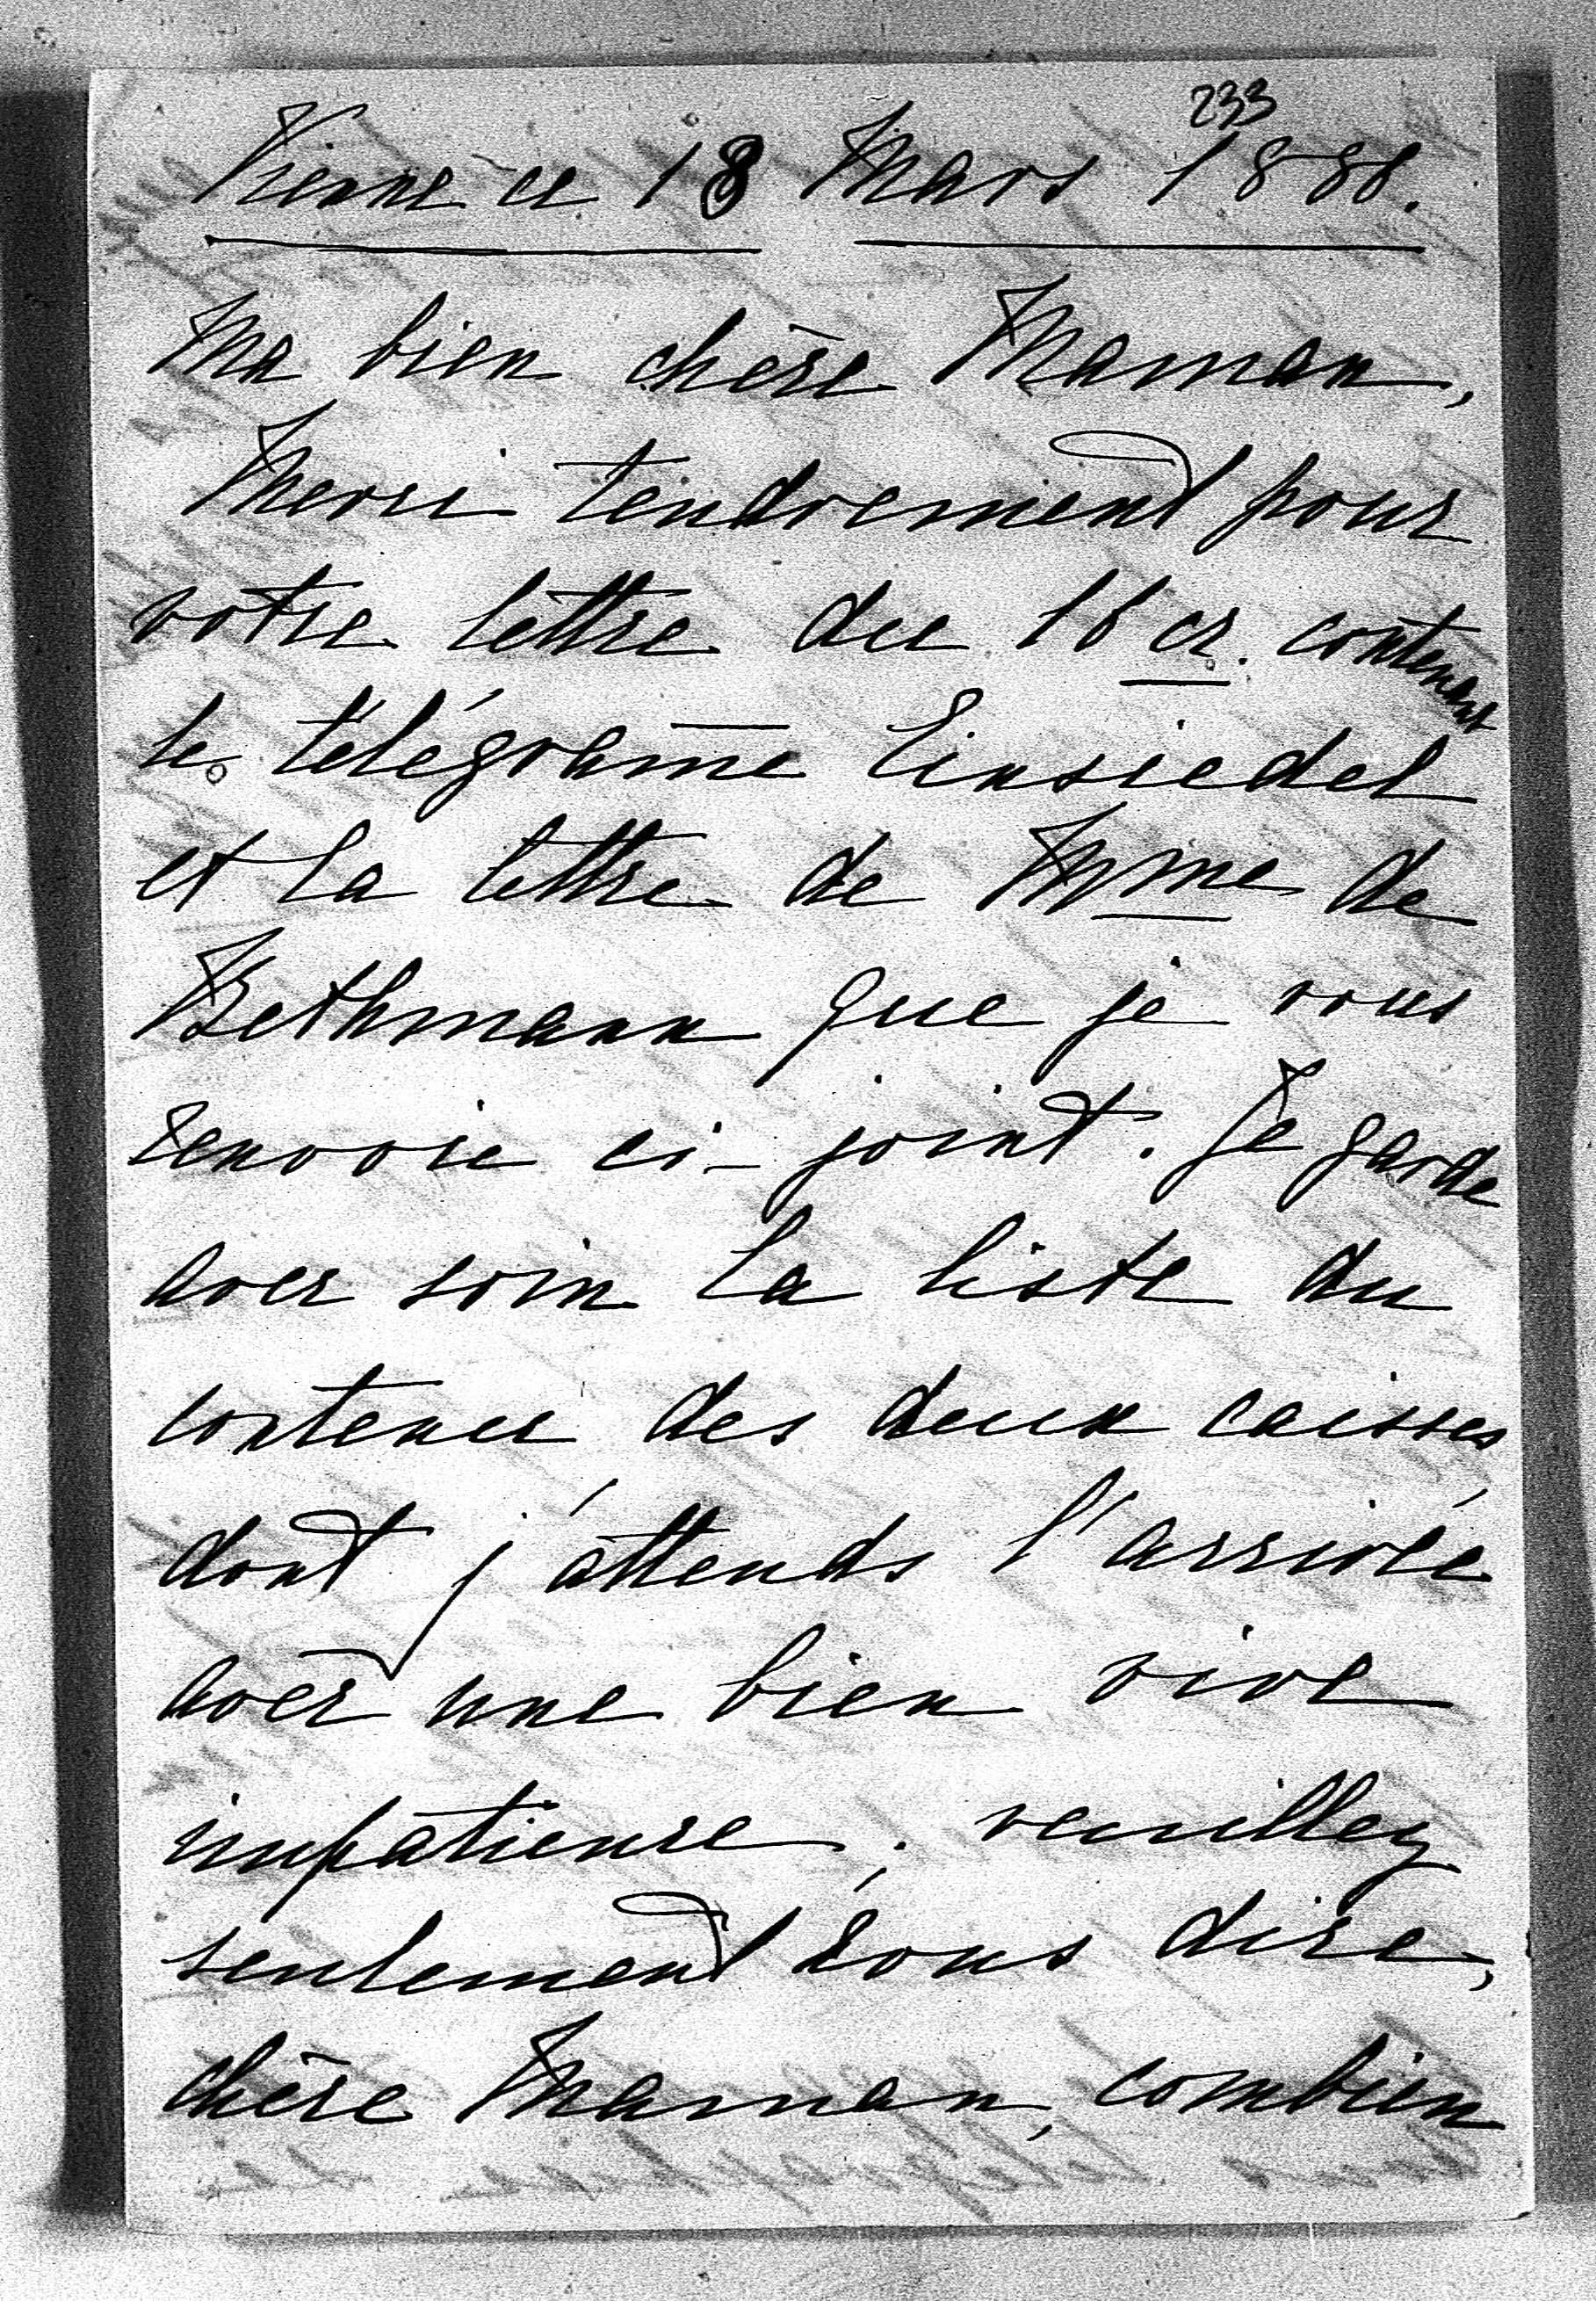 233
Vienne ce 18 Mars 1888.
Ma bien chère Maman,
Merci tendrement pour
votre lettre du 16 cr. contenant
le télégram̄e Einsiedel
et la lettre de Mme de
Bethmann que je vous
renvoie ci-joint. Je garde
avec soin la liste du
contenu des deux caisses
dont j'attends l'arrivée
avec une bien vive
impatience; veuillez
seulement nous dire,
chère Maman, combien